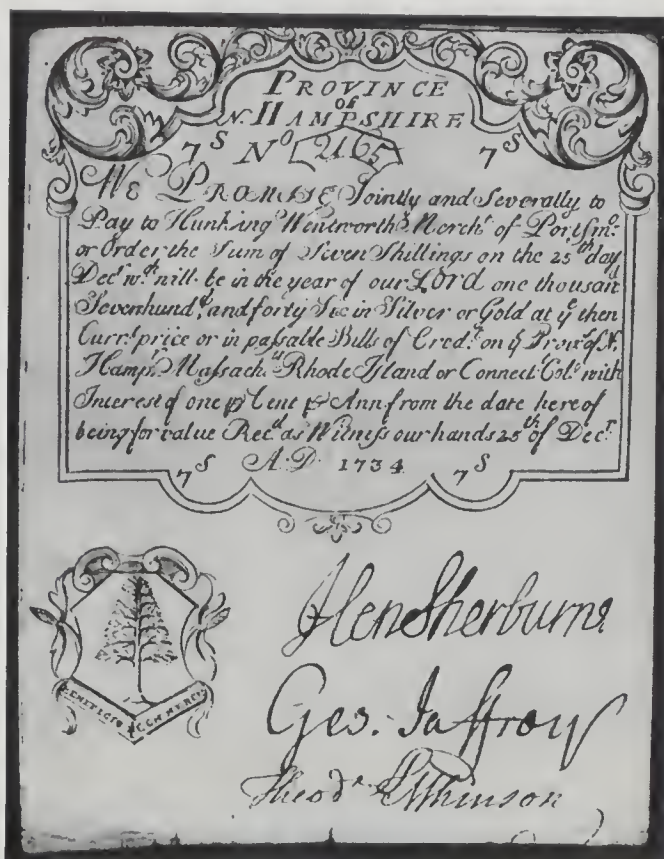 PROVINCE
of
N. HAMPSHIRE
7S No 2165 7S
We PROMISE Jointly and Severally to
Pay to Hunking Wentworth Mercht of Portsmo
or Order the Sum of Seven Shillings on the 25th day
Decr wch will be in the year of our LORD one thousand
Sevenhundd and forty Six in Silver or Gold at ye then
Currt price or in passable Bills of Credt on ye Provce of N.
Hampr Massachts Rhode Island or Connectt Colo with
Interest of one ⅌ Cent ⅌ Ann from the date here of
being for value Recd as Witness our hands 25th of Decr
7S A.D. 1734 7S
BENEFICIO COMMERCII
Hen Sherburne
Geo. Jaffrey
Theodr Atkinson